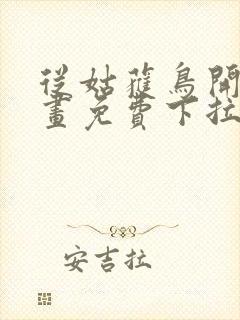 從姑蘿鳥開
畫免費下拉
安吉拉